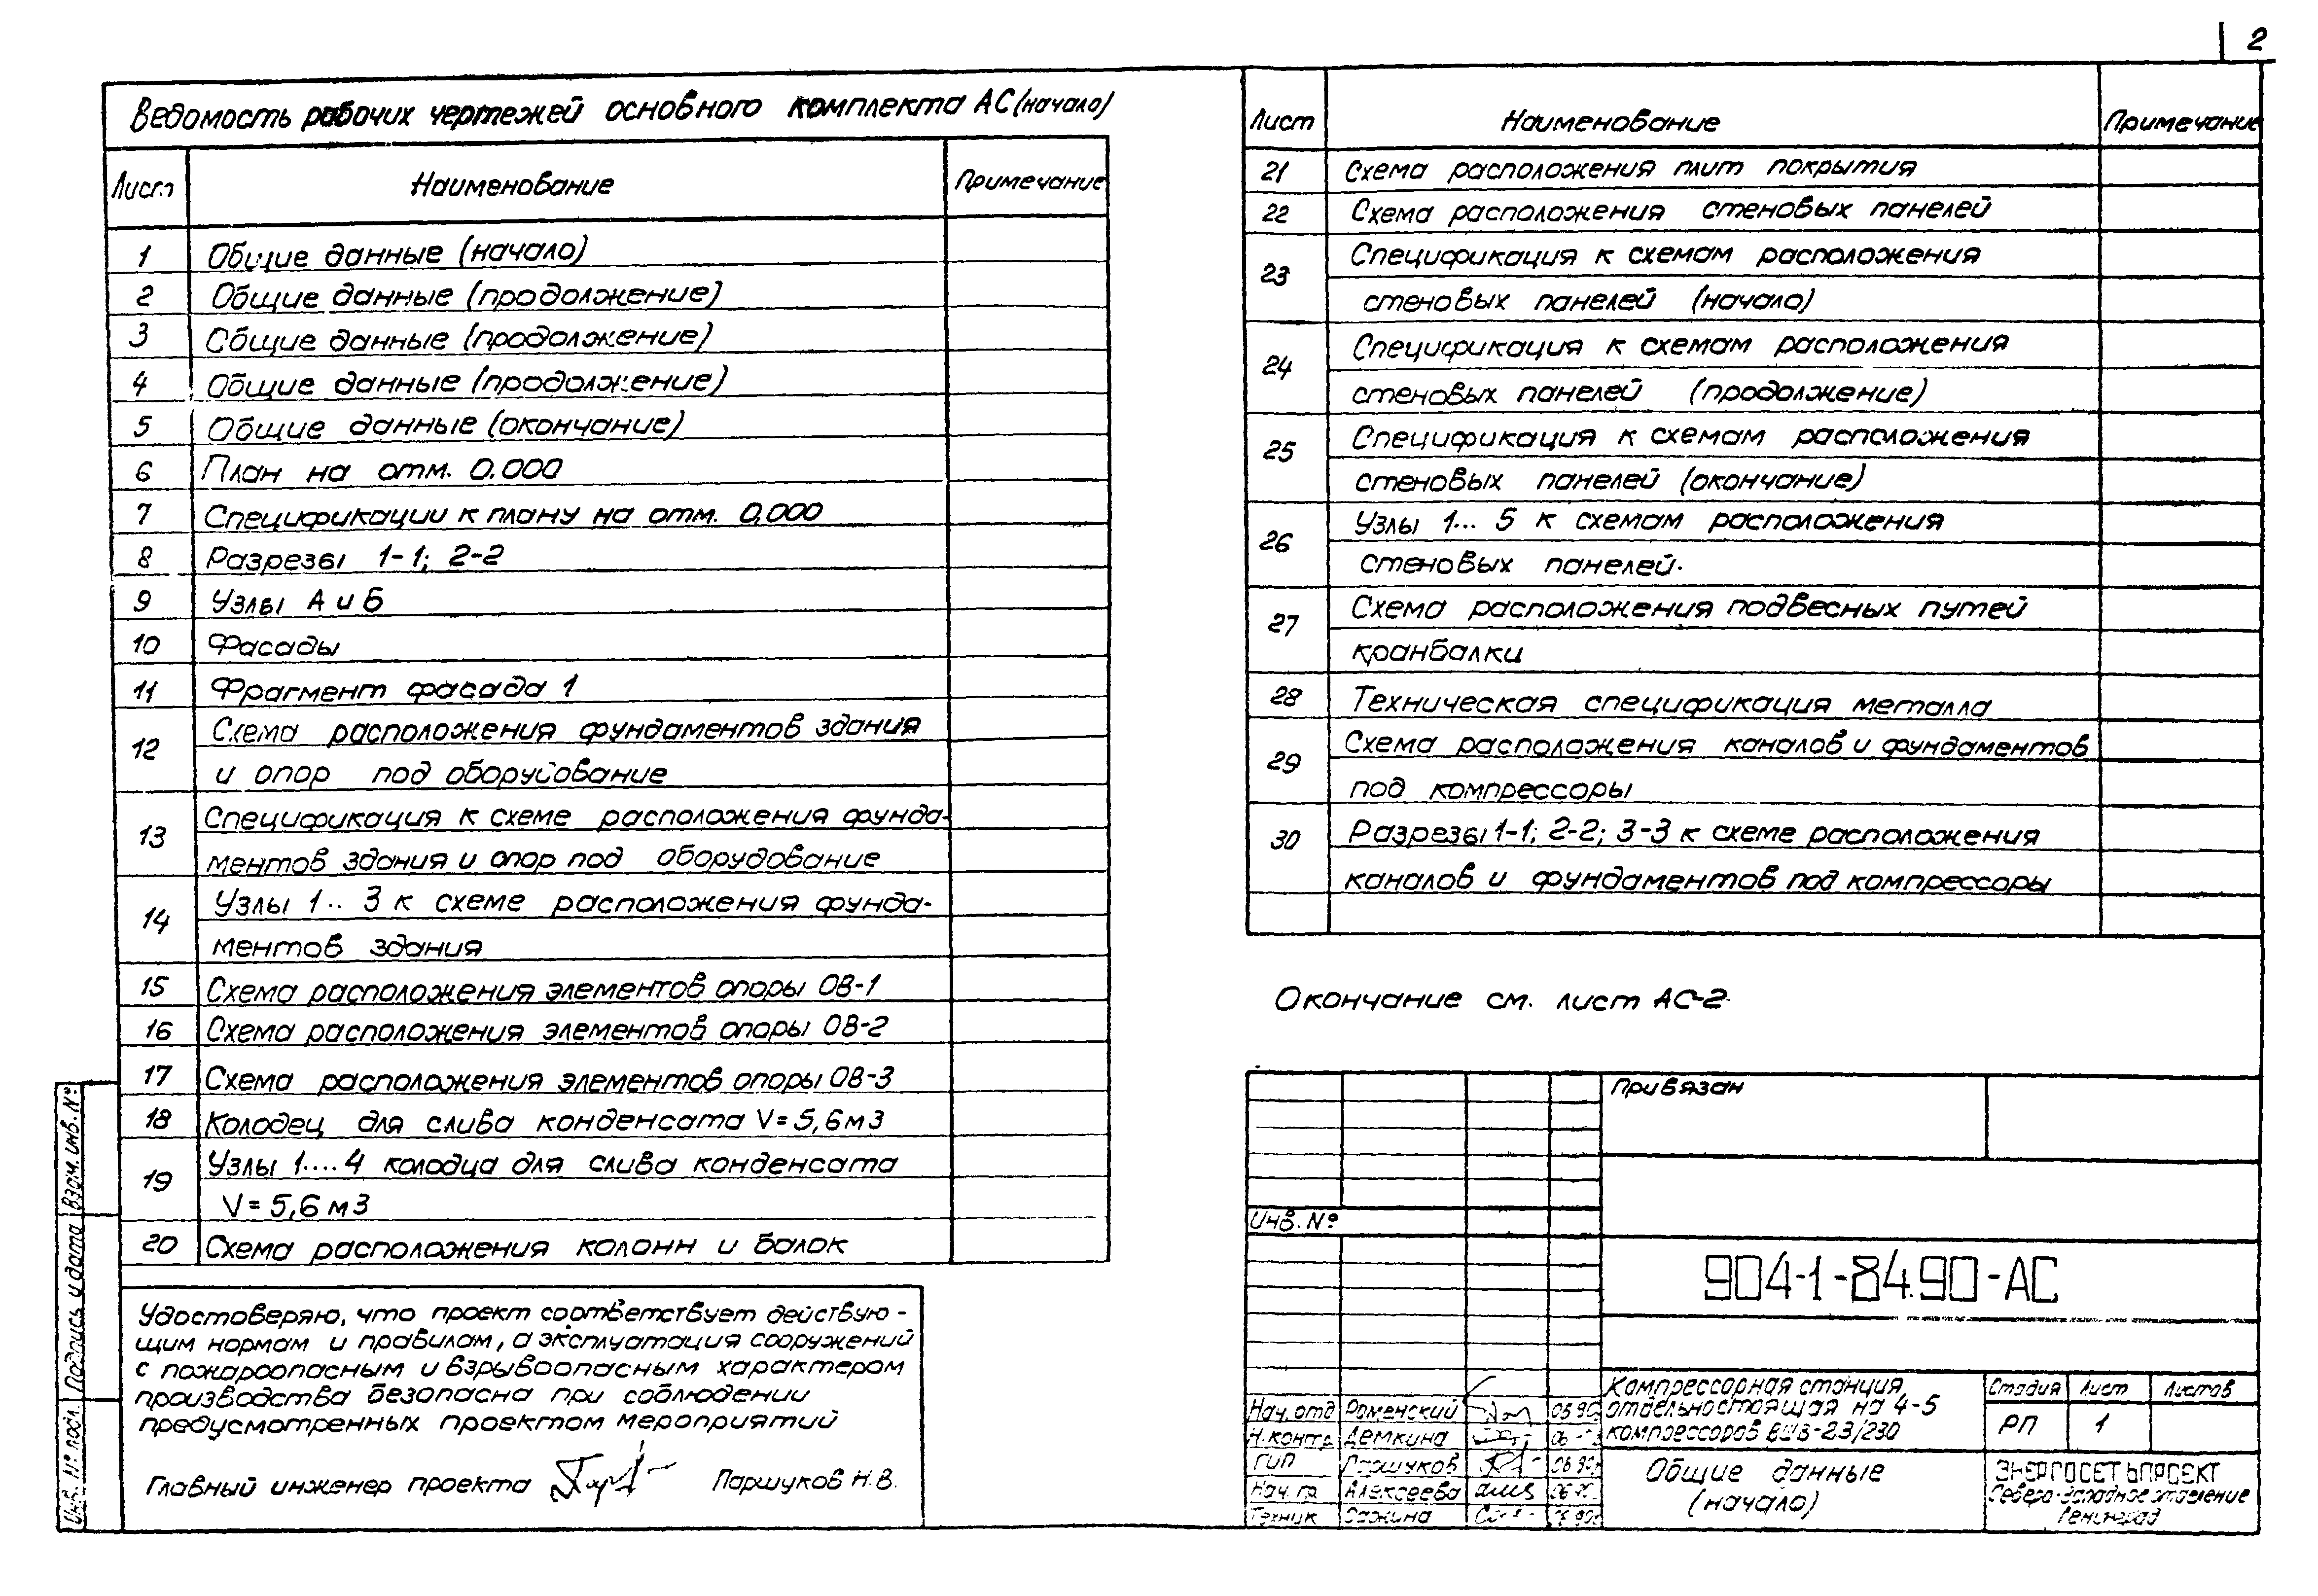 2
Ведомость рабочих чертежей основного комплекта АС (начало)
Лист Наименование Примечание
1 Общие данные (начало)
2 Общие данные (продолжение)
3 Общие данные (продолжение)
4 Общие данные (продолжение)
5 Общие данные (окончание)
6 План на отм. 0.000
7 Спецификации к плану на отм. 0,000
8 Разрезы 1-1; 2-2
9 Узлы А и Б
10 Фасады
11 Фрагмент фасада 1
12 Схема расположения фундаментов здания
и опор под оборудование
13 Спецификация к схеме расположения фунда-
ментов здания и опор под оборудование
14 Узлы 1.. 3 к схеме расположения фунда-
ментов здания
15 Схема расположения элементов опоры ОВ-1
16 Схема расположения элементов опоры ОВ-2
17 Схема расположения элементов опоры ОВ-3
18 Колодец для слива конденсата V=5,6м3
19 Узлы 1....4 колодца для слива конденсата
V=5,6 м3
20 Схема расположения колонн и балок
Удостоверяю, что проект соответствует действую-
щим нормам и правилам, а эксплуатация сооружений
с пожароопасным и взрывоопасным характером
производства безопасна при соблюдении
предусмотренных проектом мероприятий
Главный инженер проекта Паршуков Н.В.
Взам. инв. №
Подпись и дата
Инв. № подл.
Лист Наименование Примечание
21 Схема расположения плит покрытия
22 Схема расположения стеновых панелей
23 Спецификация к схемам расположения
стеновых панелей (начало)
24 Спецификация к схемам расположения
стеновых панелей (продолжение)
25 Спецификация к схемам расположения
стеновых панелей (окончание)
26 Узлы 1... 5 к схемам расположения
стеновых панелей.
27 Схема расположения подвесных путей
кранбалки
28 Техническая спецификация металла
29 Схема расположения каналов и фундаментов
под компрессоры
30 Разрезы 1-1; 2-2; 3-3 к схеме расположения
каналов и фундаментов под компрессоры
Окончание см. лист АС-2.
Привязан
Инв. №
904-1-84.90-АС
Нач. отд Раменский 06 90
Н.контр Демкина 06
ГИП Паршуков 06 90
Нач. гр. Алексеева 06
Техник Сажина
Компрессорная станция
отдельностоящая на 4-5
компрессоров ВШВ-2,3/230
Стадия Лист Листов
РП 1
Общие данные
(начало)
ЭНЕРГОСЕТЬПРОЕКТ
Северо-Западное отделение
Ленинград